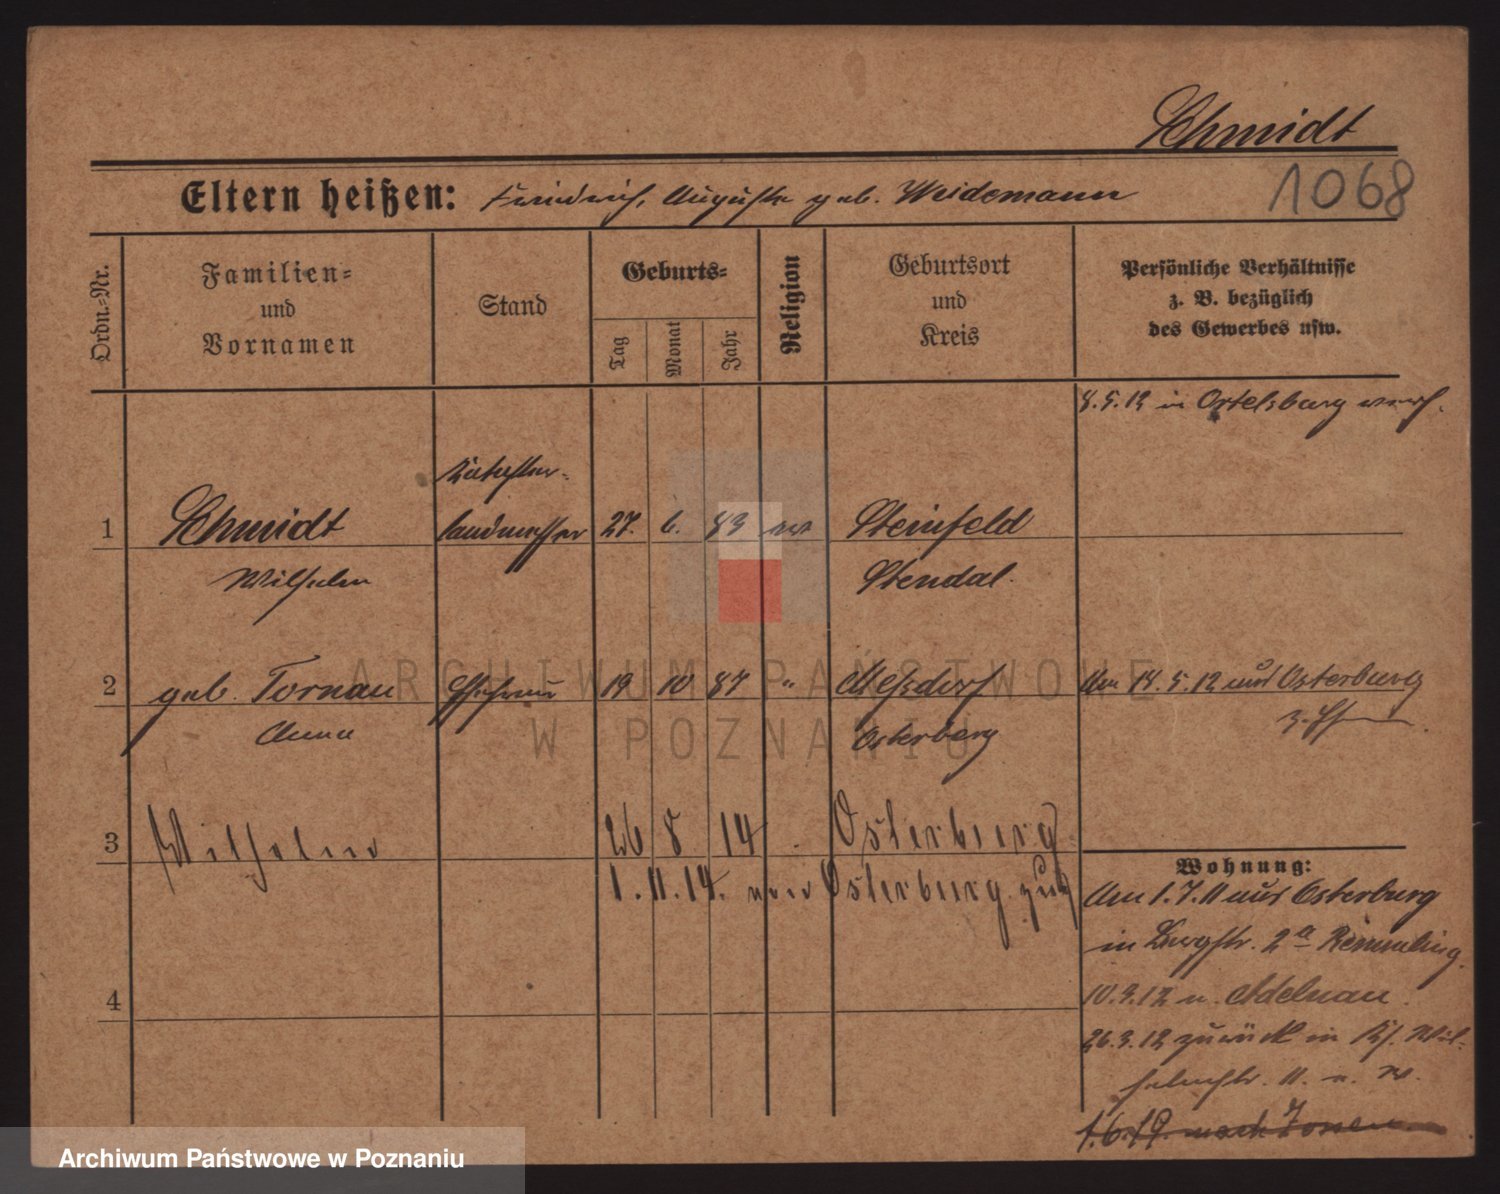 Schmidt
Eltern heißen: Friedrich, Auguste geb. Weidemann
1068
Ordn.-Nr.
Familien-
und
Vornamen
Stand
Geburts-
Tag
Monat
Jahr
Religion
Geburtsort
und
Kreis
Persönliche Verhältnisse
z. B. bezüglich
des Gewerbes usw.
8.5.12 in Ortelsburg
1
Schmidt
Wilhelm
Kataster-
landmesser
27. 6. 83 ev
Steinfeld
Stendal.
2
geb. Tornau
Anna
Ehefrau
19 10 87 "
Meßdorf
Osterburg
Am 14.5.12 aus Osterburg
3
Wilhelm
26 8 14
Osterburg
1.11.14. von Osterburg
Wohnung:
Am 1.7.11 aus Osterburg
in 2a Remmling.
10.3.12 n. Adelnau.
26.3.12 zurück in Ks. Wil-
helmstr. 11.
4
1.6.19. nach Posen
ARCHIWUM PAŃSTWOWE
W POZNANIU
Archiwum Państwowe w Poznaniu